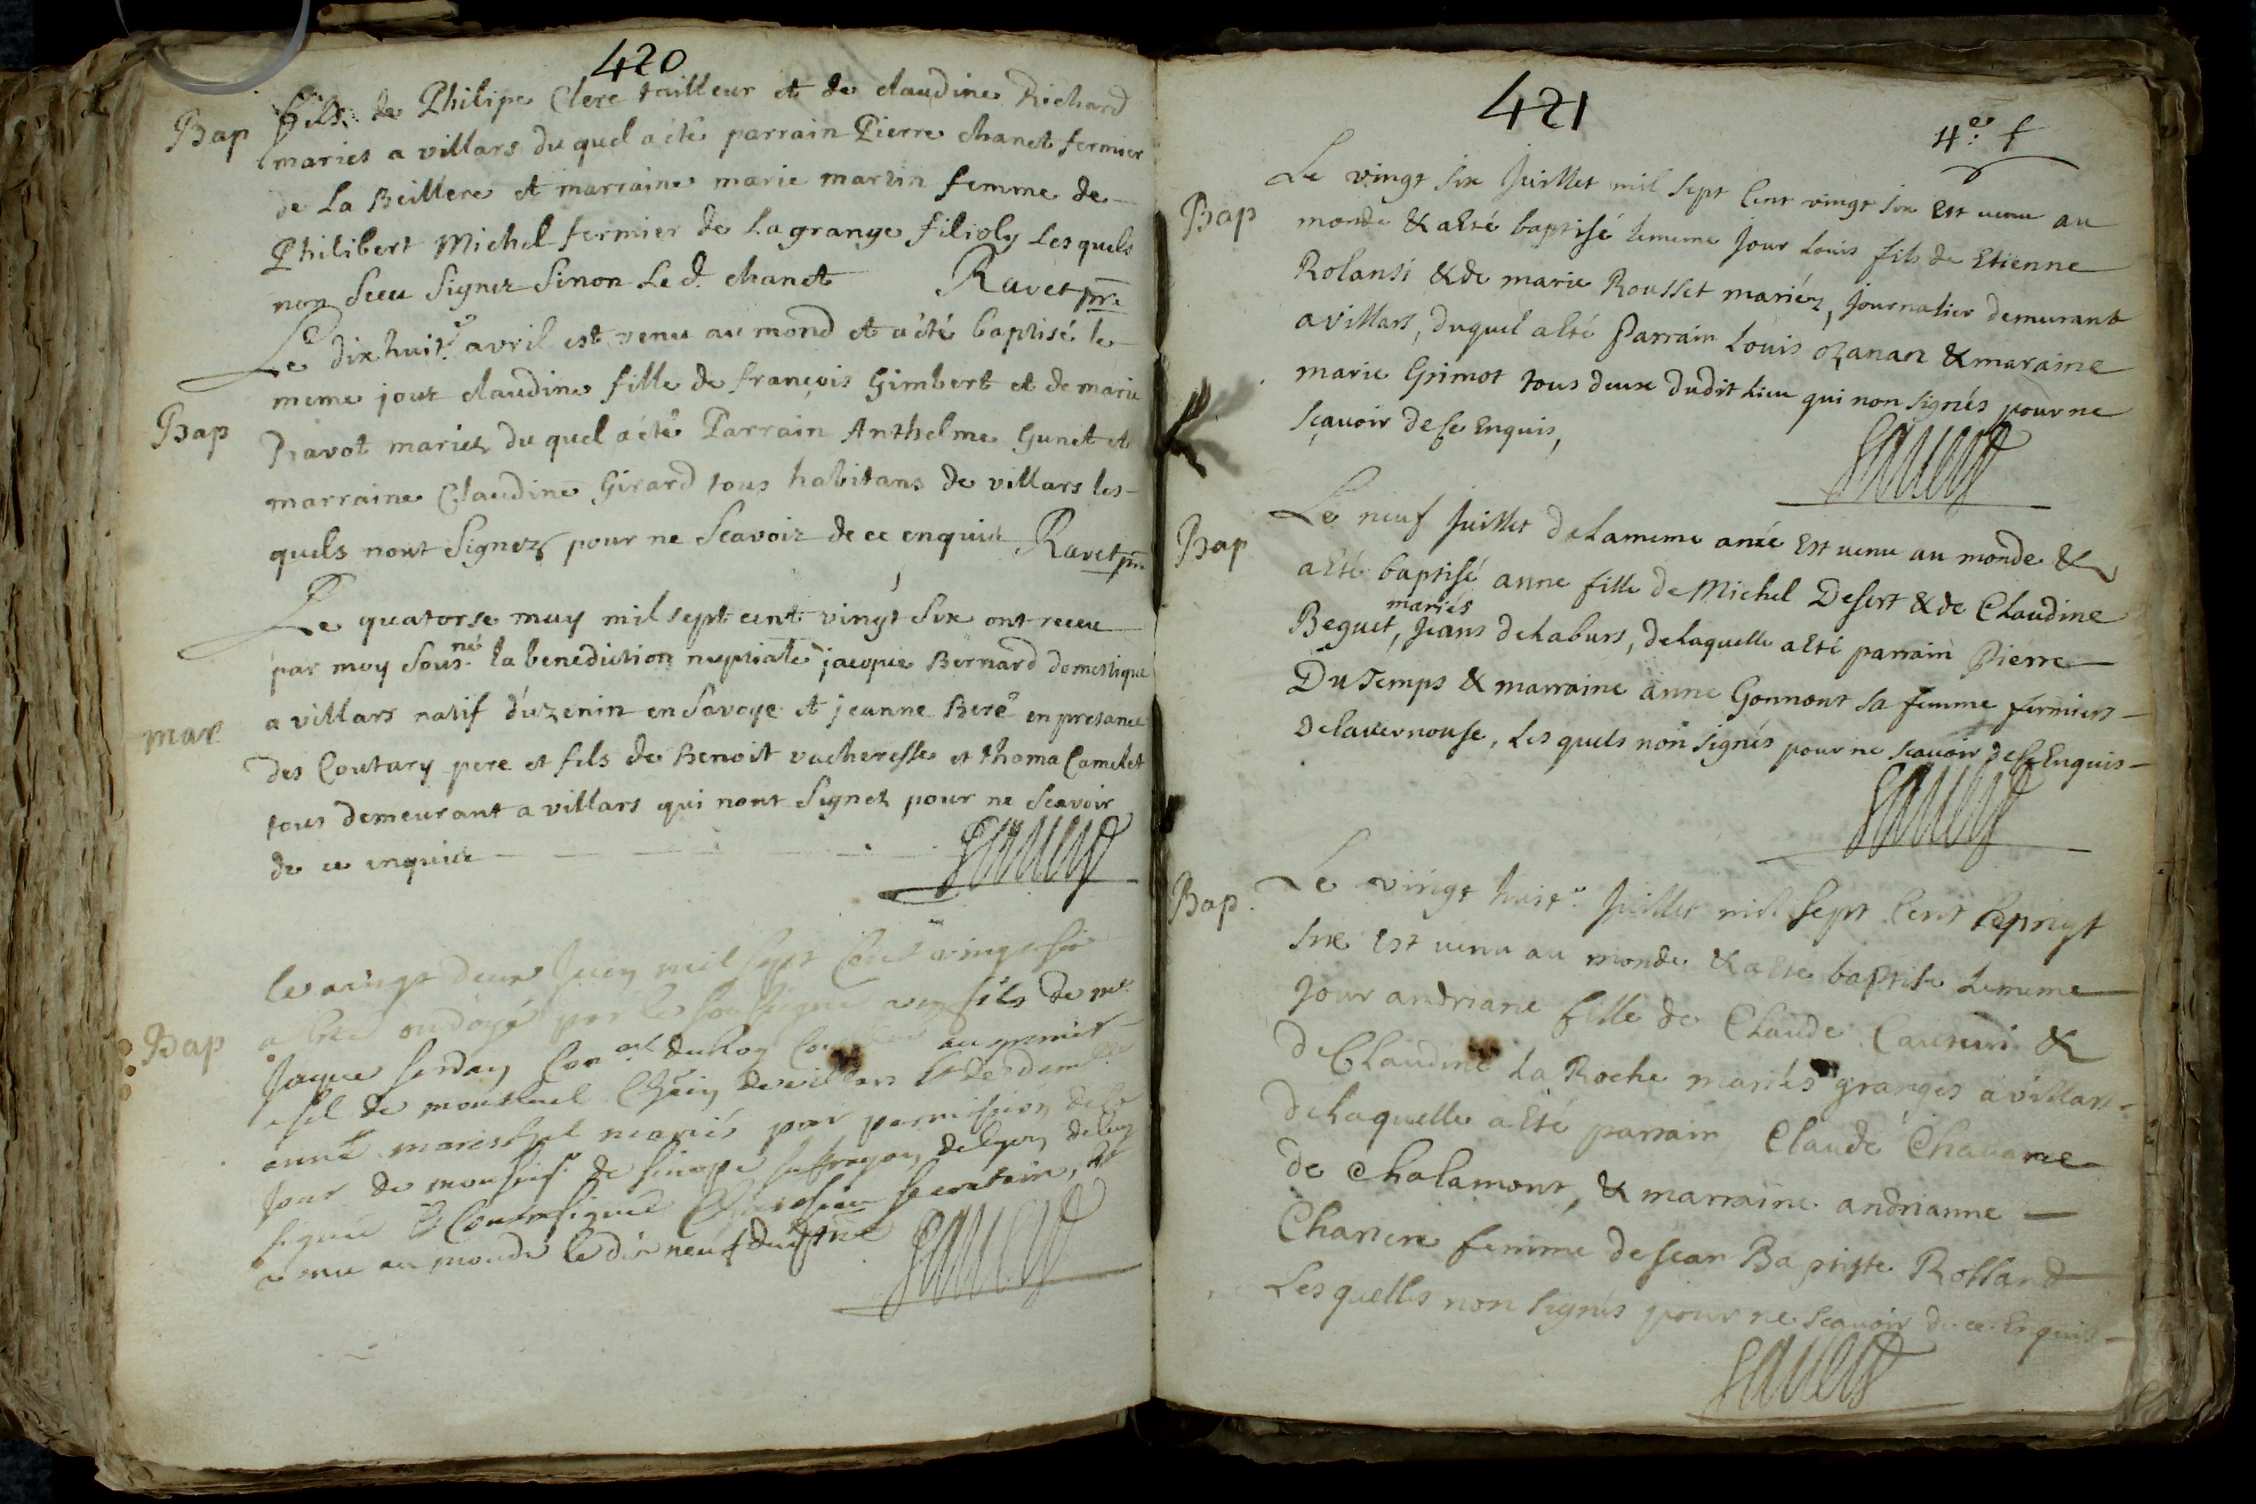 420
Bap
fils de Philipe Clerc tailleur et de claudine Richard
maries a villars du quel a été parrain Pierre chanet fermier
de La Beillere et marraine marie martin femme de
Philibert Michel fermier de Lagrange filioly Lesquels
non Sceu Signer Sinon Le d. chanet Ravet ptr
Bap
Le dixhuit.e avril est venu au mond et a été baptisé le
meme jour claudine fille de françois Gimbert et de marie
Ravot mariez du quel a été Parrain Anthelme Gunet et
marraine Claudine Girard tous habitans de villars les-
quels nont Signez pour ne Scavoir de ce enquis Ravet ptr
mar
Le quatorse may mil sept cent vingt Six ont receu
par moy Sous.né la benediction nuptiale jacque Bernard domestique
a villars natif d'uzenin en Savoye et jeanne Beré en presance
des Coutary pere et fils de Benoit vacheresse et thoma Camelet
tous demeurant a villars qui nont Signez pour ne Scavoir
de ce enquis
Bap
le vingt deux Juin mil sept Cent vingt six
a été ondoyé par le soussigné un fils de mr.
Jaque serdan Con.el du Roy au grenier
a sel de montluel de villars & de dem.lle
anne mareschal mariés par permission de ce
Jour de monseig.r de sinope suffragan de lyon de luy
signée & Contresignée secretaire, &
venu au monde le dix neuf
421
4.e f
Bap
Le vingt six Juillet mil sept Cent vingt six Est venu au
monde & a Esté baptisé lememe Jour Louis fils de Etienne
Rolansi & de marie Rousset mariéz, Journalier demurant
a Villars, duquel a Esté Parrain Louis ozanan & maraine
marie Grimot tous deux dudit Lieu qui non signés pour ne
sçauoir de Ce Enquis,
Bap
Le neuf Juillet de lameme anée Est venu au monde &
a Esté baptisé anne fille de Michel Desert & de Claudine
mariés
Beguet, Jeans de laburs, de laquelle a Esté parrain Pierre
Du Temps & marraine anne Gonnont sa femme fermiers
de lavernouse, Lesquels non signés pour ne scauoir de Ce Enquis
Bap.
Le vingt huit.e Juillet mil sept Cent
six Est venu au monde & a Esté baptisé Lememe
Jour andriane fille de Claude &
de Claudine La Roche mariés grangés a villars
de laquelle a Esté parrain Claude Chauane
de Chalamont, & marraine andrianne
femme de Jean Baptiste Rolland
Lesquelles non signés pour ne scauoir de ce Enquis